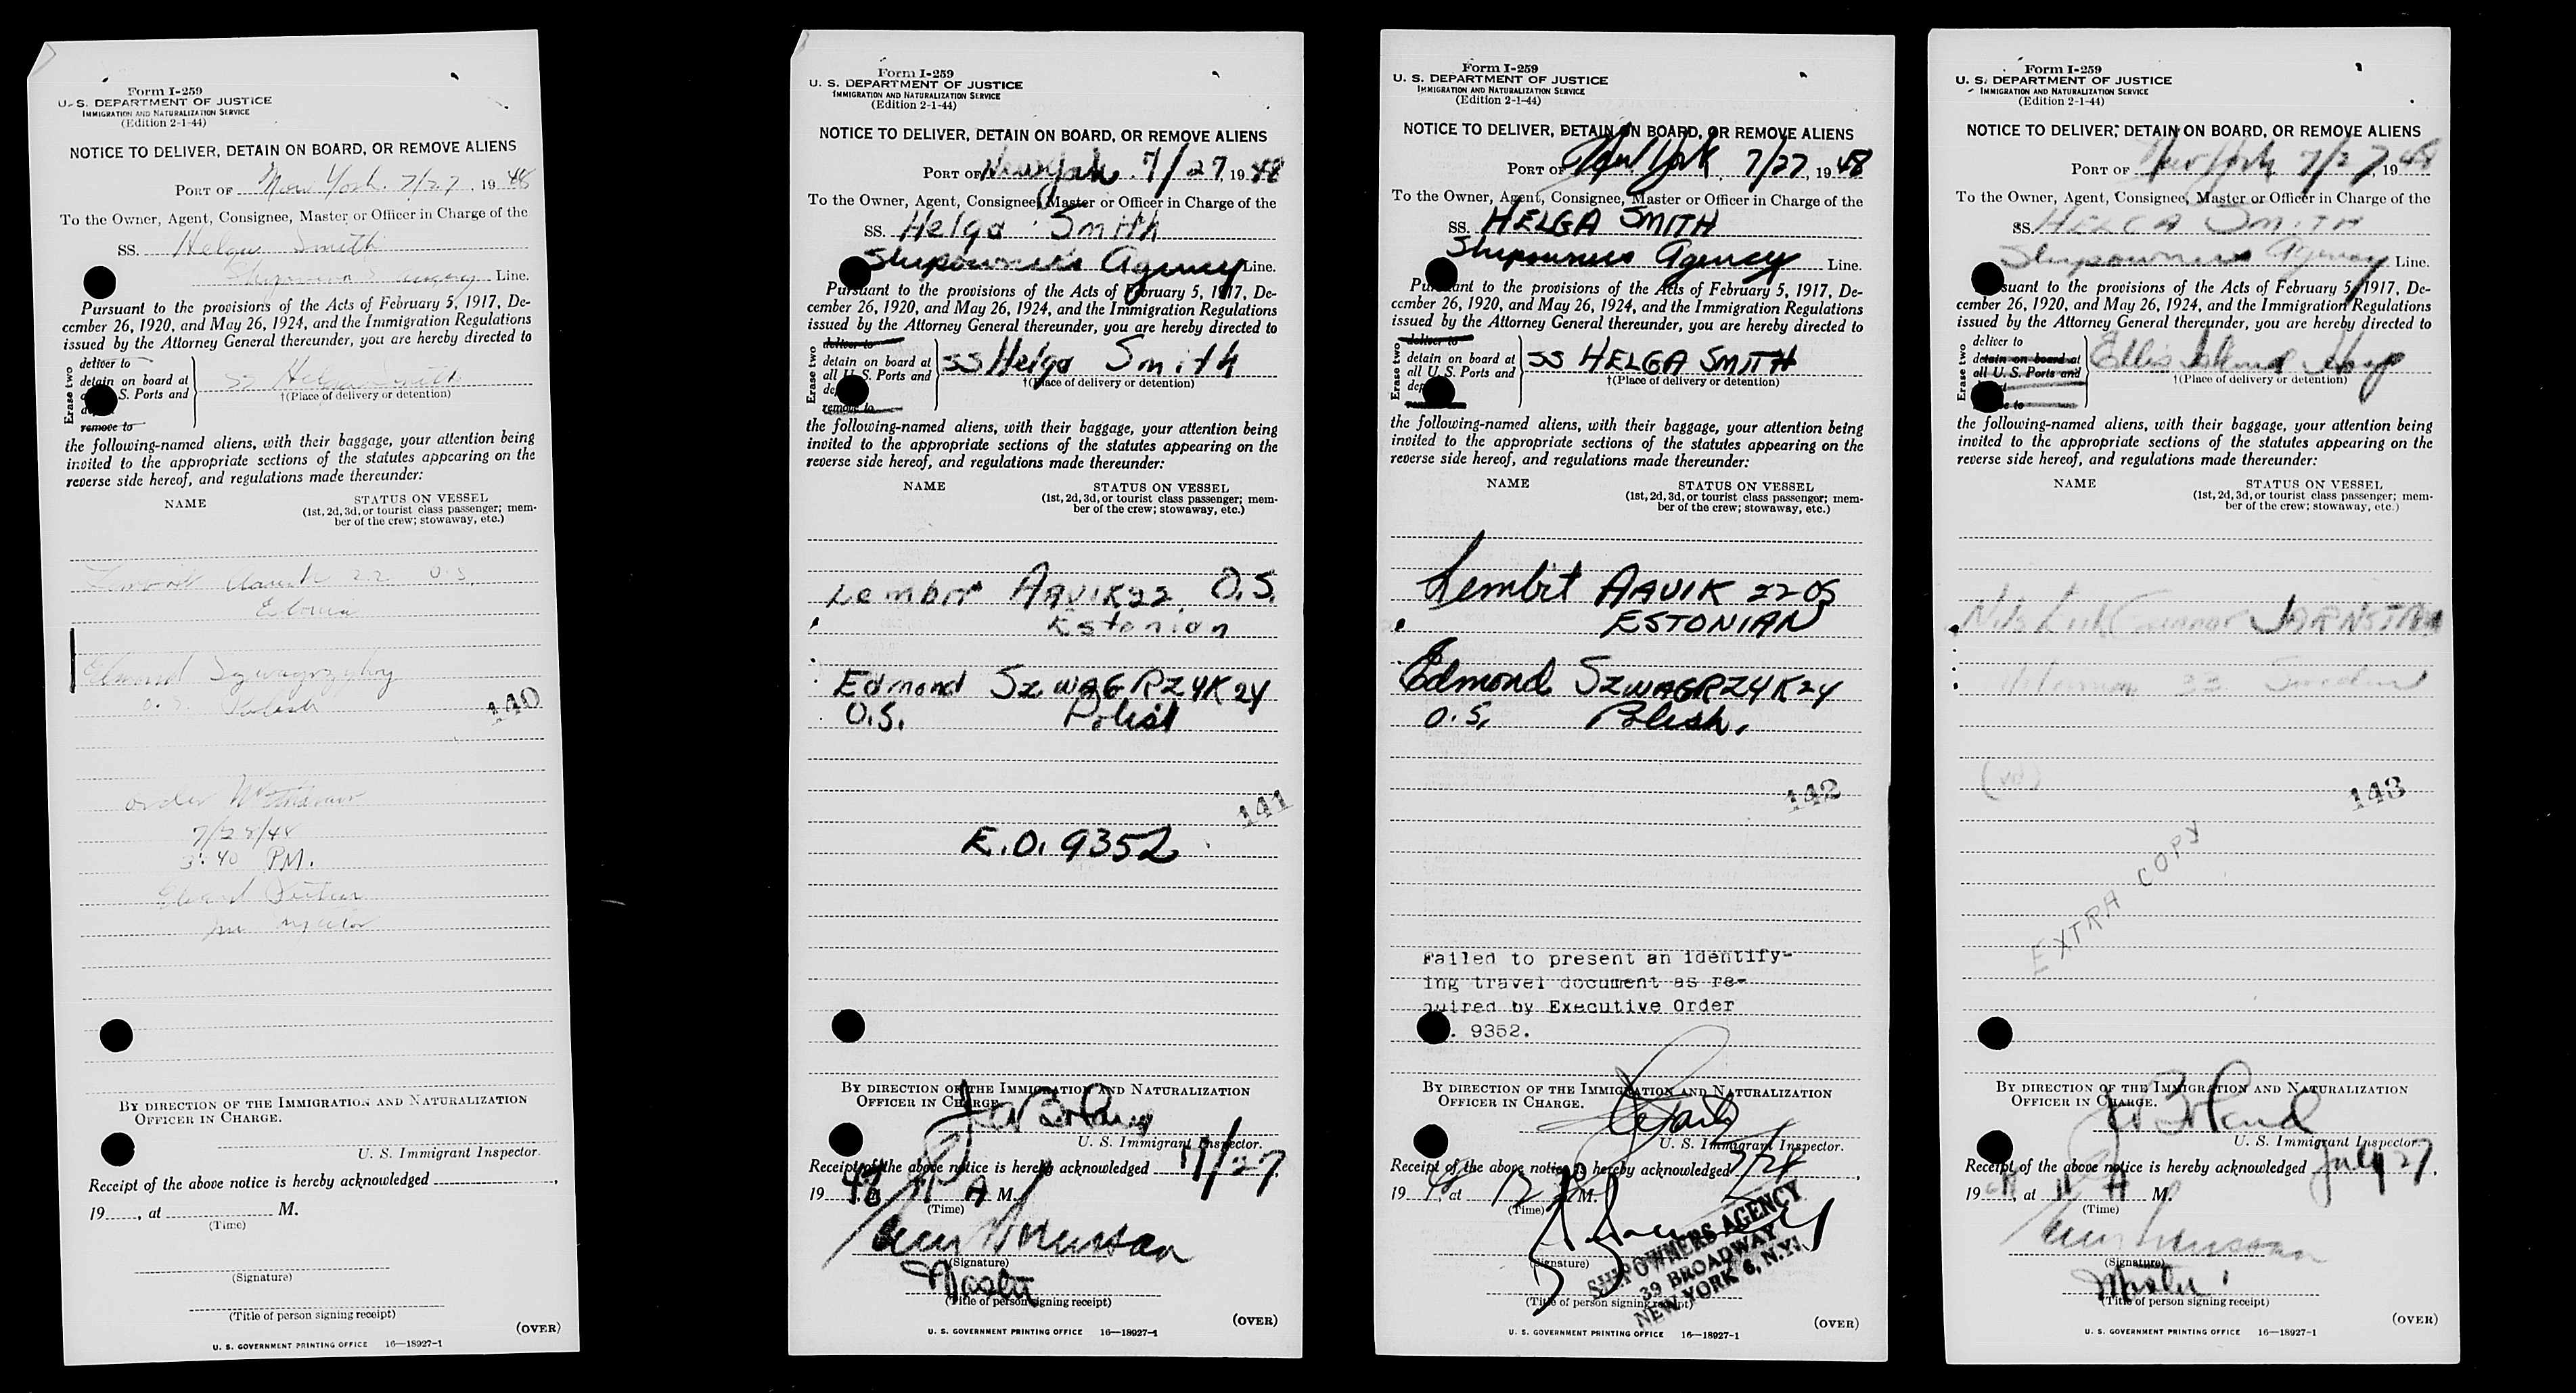 Form I-259
U. S. DEPARTMENT OF JUSTICE
IMMIGRATION AND NATURALIZATION SERVICE
(Edition 2-1-44)
NOTICE TO DELIVER, DETAIN ON BOARD, OR REMOVE ALIENS
PORT OF New York. 7/27, 1948
To the Owner, Agent, Consignee, Master or Officer in Charge of the
SS. Helga Smith
Line.
Pursuant to the provisions of the Acts of February 5, 1917, De-
cember 26, 1920, and May 26, 1924, and the Immigration Regulations
issued by the Attorney General thereunder, you are hereby directed to
Erase two
deliver to
detain on board at
S. Ports and
remove to
SS Helga Smith
†(Place of delivery or detention)
the following-named aliens, with their baggage, your attention being
invited to the appropriate sections of the statutes appearing on the
reverse side hereof, and regulations made thereunder:
NAME
STATUS ON VESSEL
(1st, 2d, 3d, or tourist class passenger; mem-
ber of the crew; stowaway, etc.)
22 O.S.
O.S. Polish
140
order
3:40 PM.
BY DIRECTION OF THE IMMIGRATION AND NATURALIZATION
OFFICER IN CHARGE.
U. S. Immigrant Inspector.
Receipt of the above notice is hereby acknowledged
19 , at M.
(Time)
(Signature)
(Title of person signing receipt)
(OVER)
U. S. GOVERNMENT PRINTING OFFICE 16—18927-1
Form I-259
U. S. DEPARTMENT OF JUSTICE
IMMIGRATION AND NATURALIZATION SERVICE
(Edition 2-1-44)
NOTICE TO DELIVER, DETAIN ON BOARD, OR REMOVE ALIENS
PORT OF New York. 7/27, 1948
To the Owner, Agent, Consignee, Master or Officer in Charge of the
SS. Helga Smith
Shipowners Agency Line.
Pursuant to the provisions of the Acts of February 5, 1917, De-
cember 26, 1920, and May 26, 1924, and the Immigration Regulations
issued by the Attorney General thereunder, you are hereby directed to
Erase two
deliver to
detain on board at
all U. S. Ports and
remove to
SS Helga Smith
†(Place of delivery or detention)
the following-named aliens, with their baggage, your attention being
invited to the appropriate sections of the statutes appearing on the
reverse side hereof, and regulations made thereunder:
NAME
STATUS ON VESSEL
(1st, 2d, 3d, or tourist class passenger; mem-
ber of the crew; stowaway, etc.)
Lembit AAVIK 22. O.S.
Estonian
Edmond SZWAGRZYK 24
O.S. Polish
141
E.O. 9352
BY DIRECTION OF THE IMMIGRATION AND NATURALIZATION
OFFICER IN CHARGE.
U. S. Immigrant Inspector.
Receipt of the above notice is hereby acknowledged 7/27,
1948, at 11 A M.
(Time)
(Signature)
Master
(Title of person signing receipt)
(OVER)
U. S. GOVERNMENT PRINTING OFFICE 16—18927-1
Form I-259
U. S. DEPARTMENT OF JUSTICE
IMMIGRATION AND NATURALIZATION SERVICE
(Edition 2-1-44)
NOTICE TO DELIVER, DETAIN ON BOARD, OR REMOVE ALIENS
PORT OF New York, 7/27, 1948
To the Owner, Agent, Consignee, Master or Officer in Charge of the
SS. HELGA SMITH
Shipowners Agency Line.
Pursuant to the provisions of the Acts of February 5, 1917, De-
cember 26, 1920, and May 26, 1924, and the Immigration Regulations
issued by the Attorney General thereunder, you are hereby directed to
Erase two
deliver to
detain on board at
all U. S. Ports and
SS HELGA SMITH
†(Place of delivery or detention)
the following-named aliens, with their baggage, your attention being
invited to the appropriate sections of the statutes appearing on the
reverse side hereof, and regulations made thereunder:
NAME
STATUS ON VESSEL
(1st, 2d, 3d, or tourist class passenger; mem-
ber of the crew; stowaway, etc.)
Lembit AAVIK 22 OS
ESTONIAN
Edmond SZWAGRZYK 24
O.S. Polish.
142
Failed to present an identify-
ing travel document as re-
quired by Executive Order
. 9352.
BY DIRECTION OF THE IMMIGRATION AND NATURALIZATION
OFFICER IN CHARGE.
U. S. Immigrant Inspector.
Receipt of the above notice is hereby acknowledged 7/28,
1948 at 12 M.
(Time)
(Signature)
SHIPOWNERS AGENCY
39 BROADWAY
NEW YORK 6, N.Y.
(Title of person signing receipt)
(OVER)
U. S. GOVERNMENT PRINTING OFFICE 16—18927-1
Form I-259
U. S. DEPARTMENT OF JUSTICE
IMMIGRATION AND NATURALIZATION SERVICE
(Edition 2-1-44)
NOTICE TO DELIVER, DETAIN ON BOARD, OR REMOVE ALIENS
PORT OF New York 7/27, 1948
To the Owner, Agent, Consignee, Master or Officer in Charge of the
SS. HELGA SMITH
Shipowners Agency Line.
suant to the provisions of the Acts of February 5, 1917, De-
cember 26, 1920, and May 26, 1924, and the Immigration Regulations
issued by the Attorney General thereunder, you are hereby directed to
Erase two
deliver to
detain on board at
all U. S. Ports and
Ellis Island Hosp
†(Place of delivery or detention)
the following-named aliens, with their baggage, your attention being
invited to the appropriate sections of the statutes appearing on the
reverse side hereof, and regulations made thereunder:
NAME
STATUS ON VESSEL
(1st, 2d, 3d, or tourist class passenger; mem-
ber of the crew; stowaway, etc.)
143
EXTRA COPY
BY DIRECTION OF THE IMMIGRATION AND NATURALIZATION
OFFICER IN CHARGE.
U. S. Immigrant Inspector.
Receipt of the above notice is hereby acknowledged July 27,
1948, at 11 A M.
(Time)
(Signature)
Master
(Title of person signing receipt)
(OVER)
U. S. GOVERNMENT PRINTING OFFICE 16—18927-1